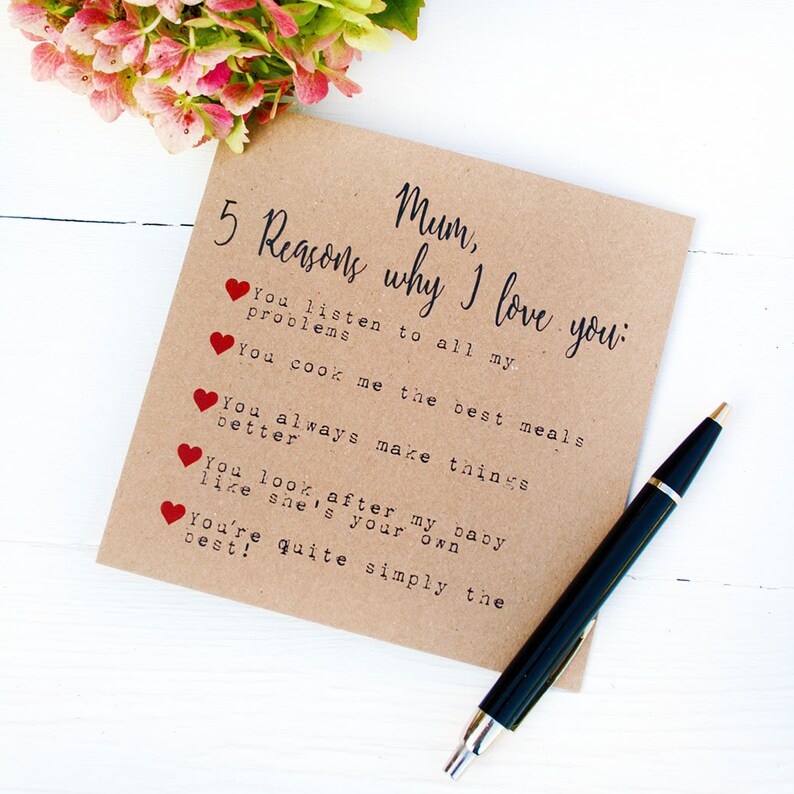 Mum,
5 Reasons why I love you:
You listen to all my
problems
You cook me the best meals
You always make things
better
You look after my baby
like she's your own
You're quite simply the
best!